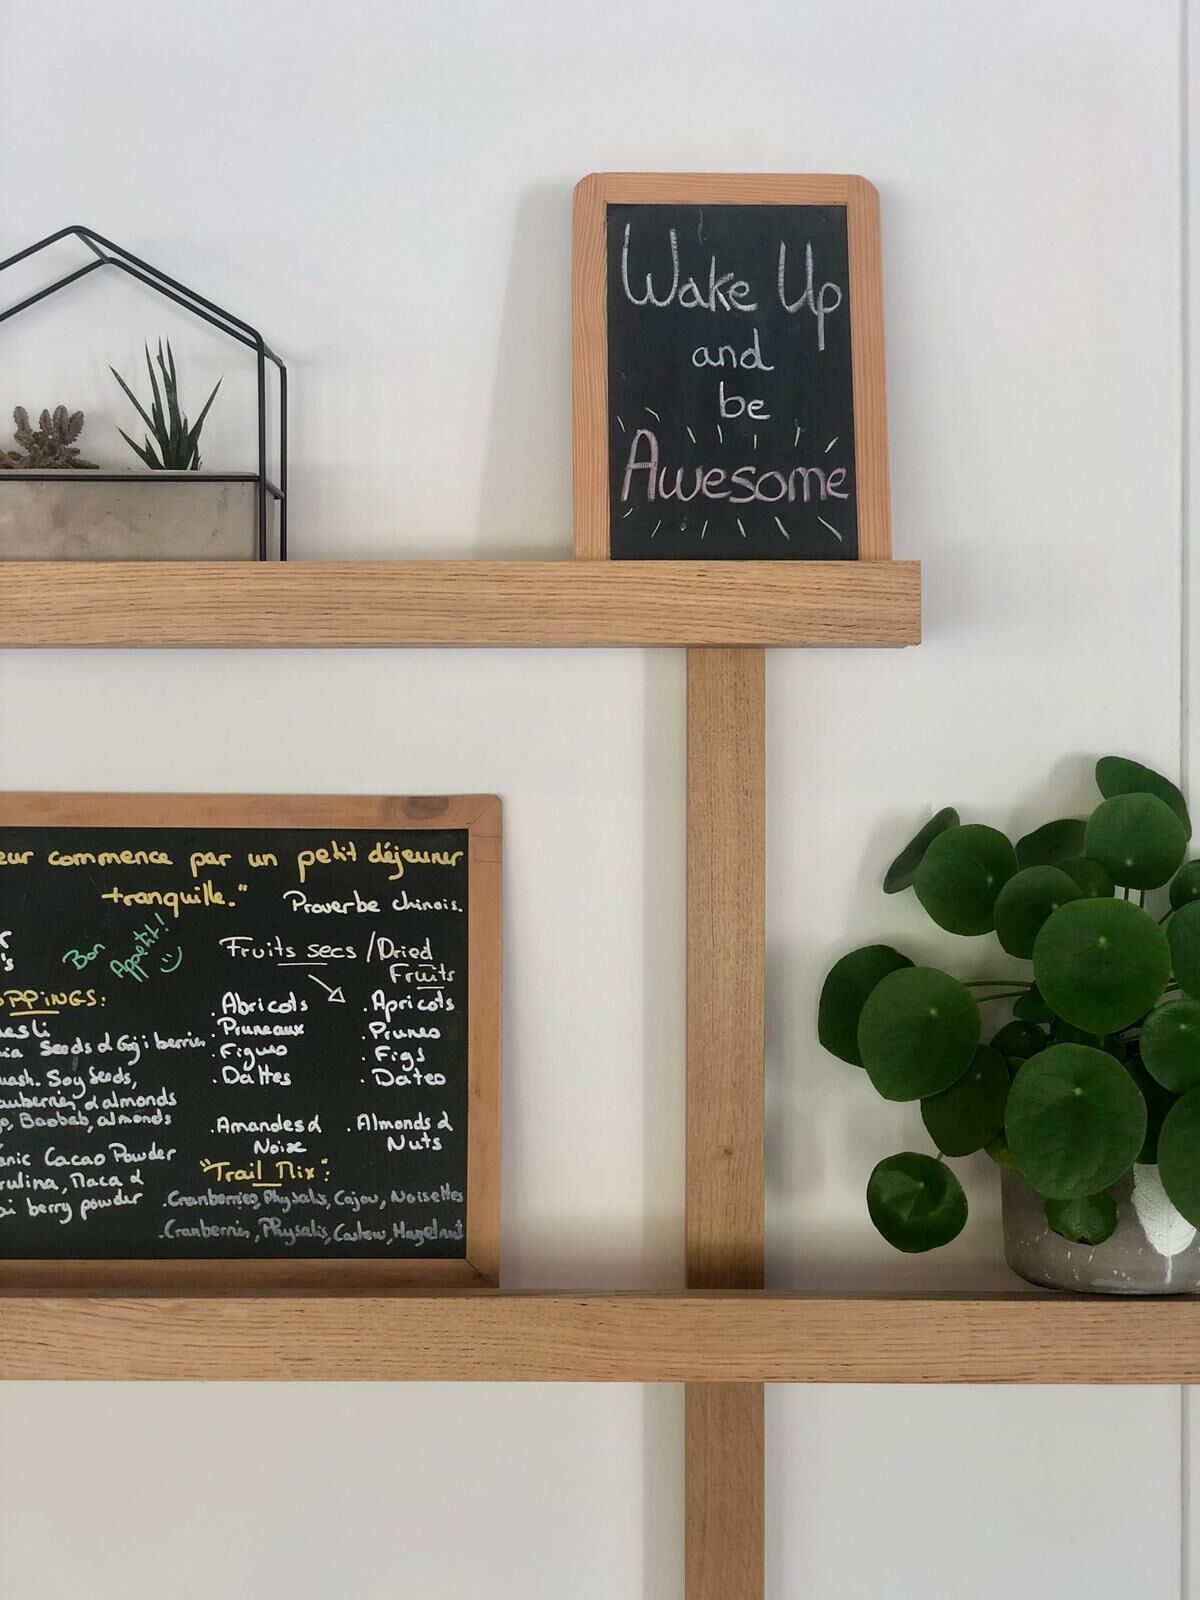 Wake Up
and
be
Awesome
commence par un petit déjeuner
tranquille."
Proverbe chinois.
Bon
Appetit!
TOPPINGS:
Seeds & Goji berries
Soy Seeds,
& almonds
Baobab, almonds
Cacao Powder
Maca &
berry powder
Fruits secs / Dried
Fruits
. Abricots
. Pruneaux
. Figues
. Dattes
. Amandes &
Noix
. Apricots
. Prunes
. Figs
. Dates
. Almonds &
Nuts
"Trail Mix":
. Cranberries, Physalis, Cajou, Noisettes
. Cranberries, Physalis, Cashew, Hazelnut